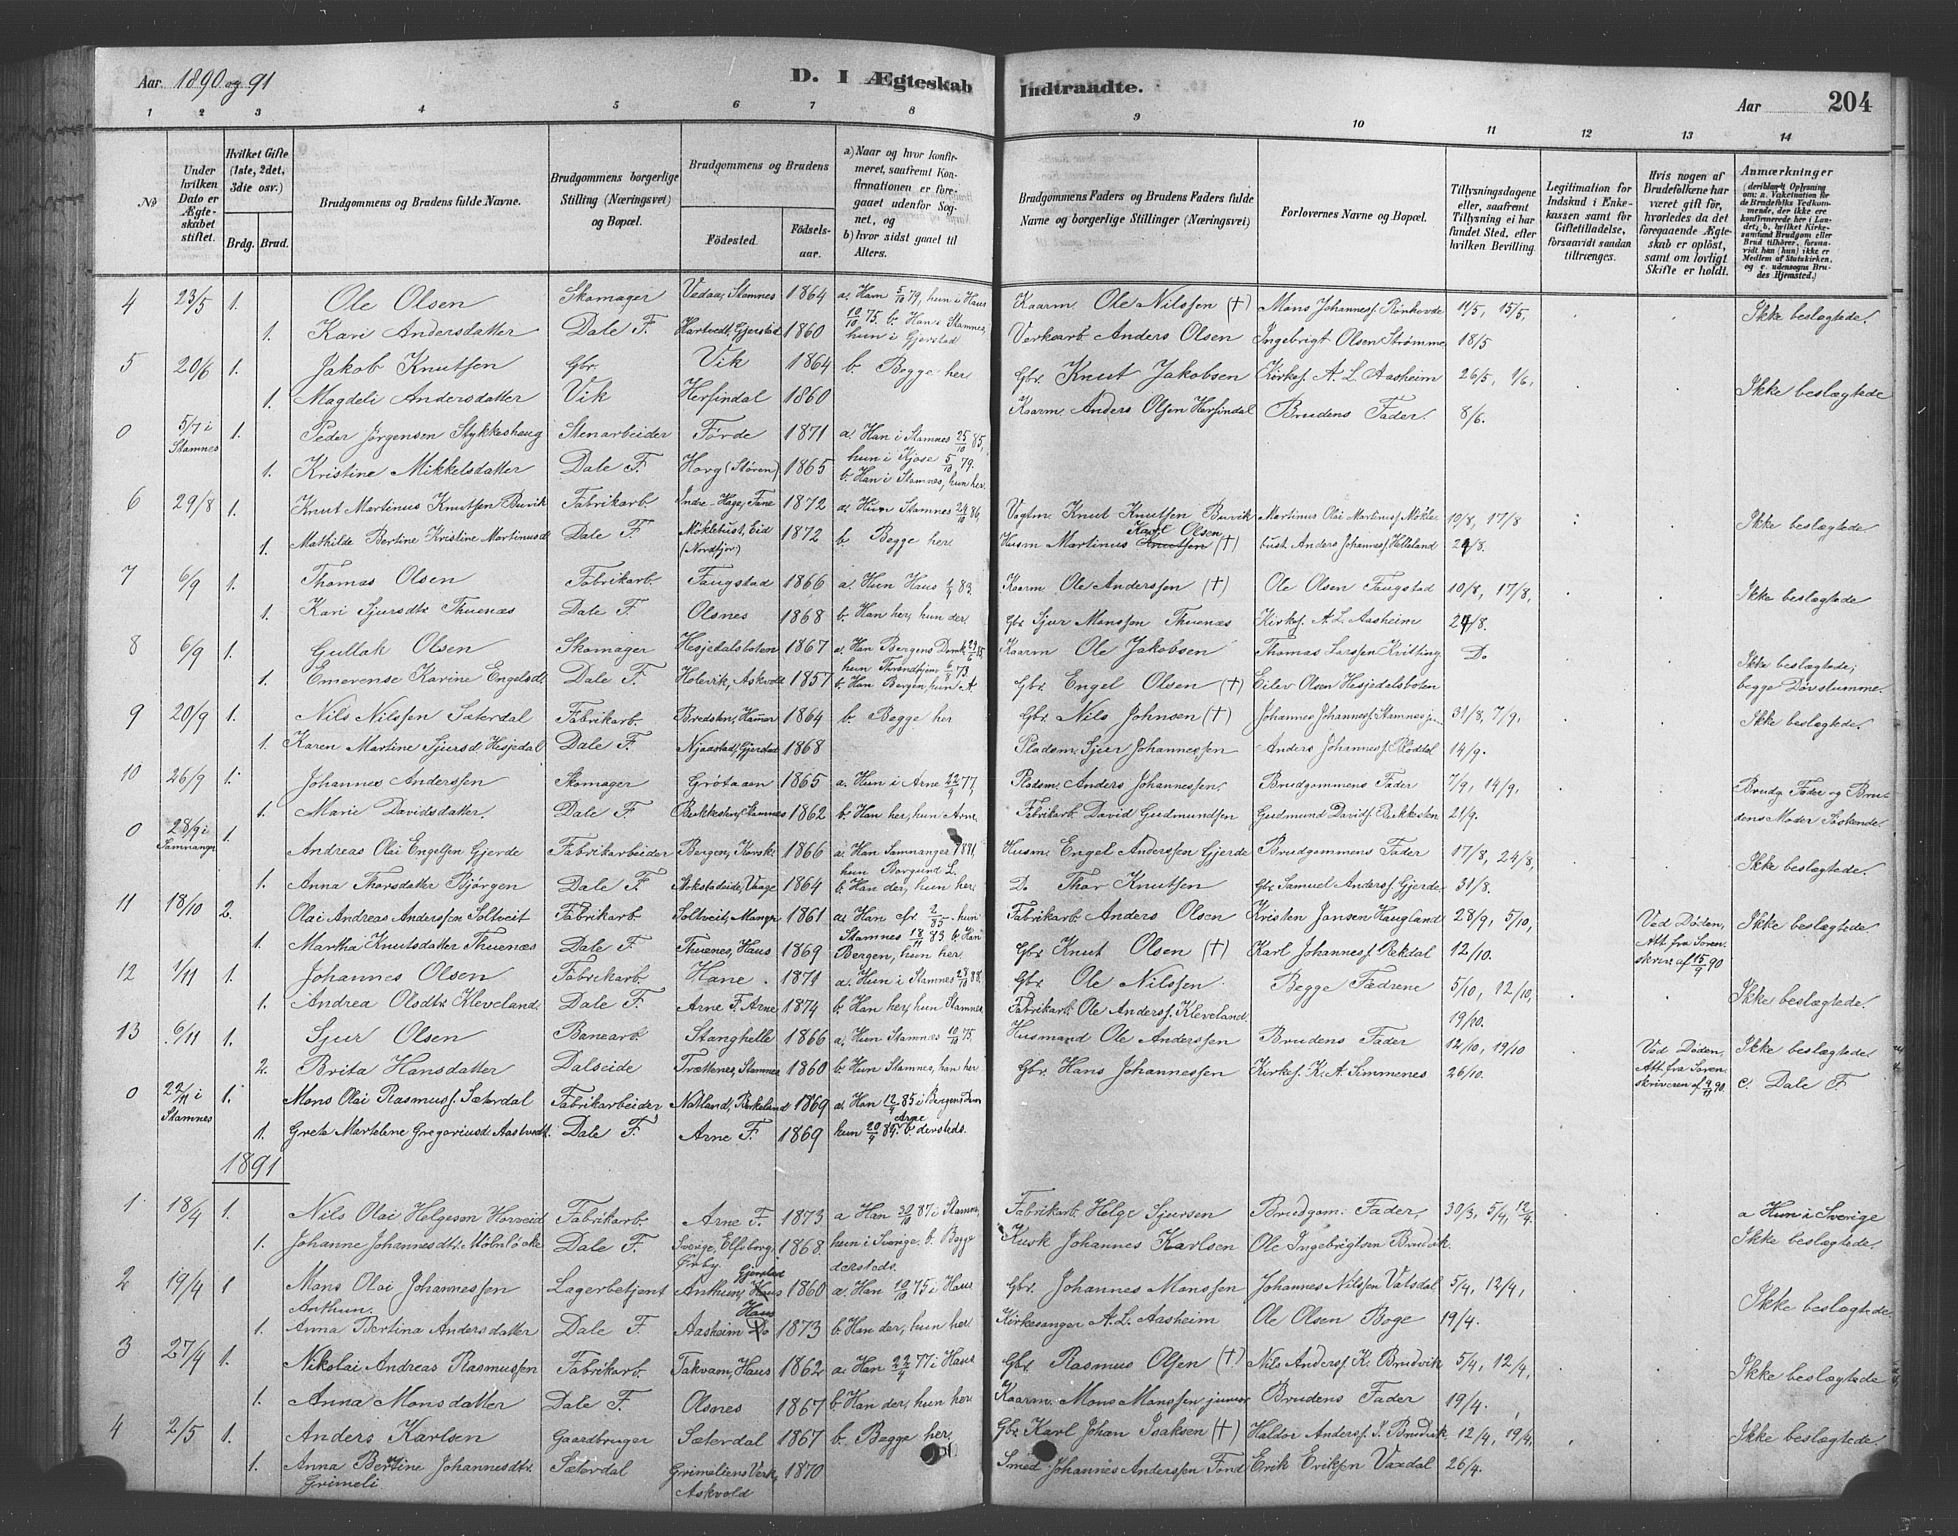 Aar 1890 og 91
D. I Ægteskab Indtraadte.
Aar 204
1 2 3 4 5 6 7 8 9 10 11 12 13 14
No
Under hvilken Dato er Ægteskabet stiftet.
Hvilket Gifte (1ste, 2det, 3die osv.) Brdg. Brud.
Brudgommens og Brudens fulde Navne.
Brudgommens borgerlige Stilling (Næringsvei) og Bopæl.
Brudgommens og Brudens Fødested. Fødselsaar.
a) Naar og hvor konfirmeret, saafremt Konfirmationen er foregaaet udenfor Sognet, og b) hvor sidst gaaet til Alters.
Brudgommens Faders og Brudens Faders fulde Navne og borgerlige Stillinger (Næringsvei)
Forlovernes Navne og Bopæl.
Tillysningsdagene eller, saafremt Tillysning ei har fundet Sted, efter hvilken Bevilling.
Legitimation for Indskud i Enkekassen samt for Giftetilladelse, forsaavidt saadan tiltrænges.
Hvis nogen af Brudefolkene har været gift før, hvorledes da det foregaaende Ægteskab er opløst, samt om lovligt Skifte er holdt.
Anmærkninger
4 23/5 1. Ole Olsen Skomager Vedaa, Stamnes 1864 a. Ham 5/10 79, hun i Haus Kaarm Ole Nilssen (†) Mons Johannesf. Rönhovde 11/5, 15/5, Ikke beslægtede.
1. Kari Andersdatter Dale F. Hartvedt, Gjerstad 1860 10/10 75. b. Han i Stamnes, hun i Gjerstad Verkearb Anders Olsen Ingebrigt Olsen Strømme 18/5
5 20/6 1. Jakob Knutsen Gbr. Vik 1864 b. Begge her Gbr. Knut Jakobsen Kirkes. A. L. Aasheim 26/5, 1/6, Ikke beslægtede
1. Magdeli Andersdatter Vik Herfindal 1860 Kaarm. Anders Olsen Herfindal Brudens Fader. 8/6.
0 5/7 i Stamnes 1. Peder Jørgensen Stykkeshaug Stenarbeider Førde 1871 a. Han i Stamnes 25/10 85, hun i Kjøse 5/10 79.
1. Kristine Mikkelsdatter Dale F. Horg (Støren) 1865 b. Han i Stamnes, hun her.
6 29/8 1. Knut Martinus Knutsen Buvik Fabrikarb. Indre-Hage, Fane 1872 a. Hun Stamnes 24/10 86, Vagtm Knut Knutsen Buvik Martinus Olai Martinusf. Mökle- 10/8, 17/8 Ikke beslægtede
1. Mathilde Bertine Kristine Martinusd Dale F. Möklebust, Eid (Nordfjor) 1872 b. Begge her Husm Martinus Karl Olsen (†) bust Anders Johannesf. Helleland 24/8.
7 6/9 1. Thomas Olsen Fabrikarb. Faugstad 1866 a. Hun Haus 83. Kaarm Ole Anderssen (†) Ole Olsen Faugstad 10/8, 17/8, Ikke beslægtede
1. Kari Sjursdtr Thuenæs Dale F. Olsnes 1868 b. Han her, hun der. Gbr. Sjur Monssen Thuenæs Kirkes. A. L. Aasheim 24/8.
8 6/9 1. Gullak Olsen Skomager Hesjedalsboten 1867 a. Han Bergens Domk. 85, Kaarm Ole Jakobsen Thomas Larssen Kvitting Do Ikke beslægtede;
1. Emerense Karine Engelsdt Dale F. Holevik, Askvold 1857 hun Throndhjem 6/8 73. b. Han Bergen, hun A. Gbr. Engel Olsen (†) Eilev Olsen Hesjedalsboten begge Døvstumme.
9 20/9 1. Nils Nilssen Sæterdal Fabrikarb. Bredsten, Hamer 1864 b. Begge her Gbr. Nils Johnsen (†) Johannes Johannesf. Stamnesje 31/8, 7/9, Ikke beslægtede.
1. Karen Martine Sjursd. Hesjedal Dale F. Njaastad, Gjerstad 1868 Pladsm. Sjur Johannessen Anders Johannesf. Floddal 14/9.
10 26/9 1. Johannes Anderssen Skomager Grøtaaen 1865 a. Hun i Arne 22/9 77. Pladsm. Anders Johannessen, Brudgommens Fader 7/9, 14/9, Brudg. Fader og Bru-
1. Marie Davidsdatter. Dale F. Bukkesten, Stamnes 1862 b. Han her, hun Arne. Fabrikarb. David Gudmundsen Gudmund Davidf. Bukkesten 21/9. dens Moder Søskende.
0 28/9 i Samnanger 1. Andreas Olai Engelsen Gjerde Fabrikarbeider Bergen, Korsk. 1866 a. Han Samnanger 1881, hun Borgund L. Husm. Engel Anderssen Gjerde Brudgommens Fader 17/8, 24/8, Ikke beslægtede.
1. Anna Thorsdatter Bjørgen Dale F. Vaage 1864 b. Han der, hun her D. Thor Knutsen Gbr. Samuel Andersf. Gjerde 31/8.
11 18/10 2. Olai Andreas Anderssen Soltveit Fabrikarb. Soltveit, Manger 1861 a. Han cfr. 2/85. hun Fabrikarb. Anders Olsen Kristen Jansen Haugland 28/9, 5/10, Ved Døden, Ikke beslægtede.
1. Martha Knutsdatter Thuenæs Dale F. Thuenes, Haus 1869 Stamnes 18/11 83 b. Han Bergen, hun her. Gbr. Knut Olsen (†) Karl Johannesf. Rekdal 12/10. Att. fra Soren- skriv. af 15/9 90
12 1/11 1. Johannes Olsen Fabrikarb. Hane. 1871 a. Hun i Stamnes 28/10 88. Gbr. Ole Nilssen. Begge Fædrene 5/10, 12/10, Ikke beslægtede.
1. Andrea Olsdtr Kleveland Dale F. Arne F. Arne 1874 b. Han her, hun Stamnes. Fabrikarb. Ole Andersf. Kleveland 19/10.
13 6/11 1. Sjur Olsen Banearb. Stanghelle 1866 a. Hun Stamnes 10/10 75. Husmand Ole Anderssen Brudens Fader 12/10, 19/10 Ved Døden, Ikke beslægtede
2. Brita Hansdatter Dalseide Trættenes, Stamnes 1860 b. Hun Stamnes, han her Gbr. Hans Johannessen Kirkes. K. A. Simmenes 26/10. Att. fra Soren- skriveren af 90. c. Dale F.
0 22/11 i Stamnes 1. Mons Olai Rasmusf. Sæterdal Fabrikarbeider Natland, Birkeland 1869 a. Han 12/9 85 i Bergens Dom
1. Greta Martelene Gregoriusd. Aastvedt. Dale F. Arne F. 1869 hun 20/9 84. Arne b. dersteds.
1891
1 18/4 1. Nils Olai Helgesen Horveid Fabrikarb. Arne F. 1873. a Han 30/10 87 i Stamnes, Fabrikarb. Helge Sjursen Brudgom. Fader, 30/3, 5/4, 12/4. a Hun i Sverige
1. Johanne Johannesdtr. Møbnløcke Dale F. Sverige, Elfsborg Örby. 1868. hun i Sverige. b. Begge dersteds. Kusk Johannes Karlsen Ole Ingebrigtsen Brudvik. Ikke beslægtede.
2 19/4 1 Mons Olai Johannessen Ankhun. Lagerbetjent Ankhun, Gjerstad 1860 a. Han 10/10 75 i Haus Gbr. Johannes Monssen Johannes Nilssen Vatsdal 5/4, 12/4, Ikke beslægtede.
1. Anna Bertina Andersdatter Dale F. Aasheim Haus 1873 b. Han der, hun her Kirkesanger A. L. Aasheim Ole Olsen Boge 19/4.
3 27/4 1. Nikolai Andreas Rasmussen Fabrikarb. Takvam, Haus 1862 a. Han 22/9 77 i Haus Gbr. Rasmus Olsen (†) Nils Andersf. K. Brudvik 5/4, 12/4, Ikke beslægtede
1. Anna Monsdatter Dale F. Olsnes 1867 b. Han der, hun her Kaarm. Mons Monssen junior Brudens Fader 19/4.
4 2/5 1. Anders Karlsen Gaardbruger Sæterdal 1867 b. Begge her. Gbr. Karl Johan Isaksen (†) Haldor Andersf. I. Brudvik 12/4, 19/4, Ikke beslægtede.
1. Anna Bertine Johannesdtr. Grimeli Sæterdal Grimeliens Verk, Askvold 1870 Smed Johannes Anderssen Fond Erik Eriksen Vaxdal 26/4.